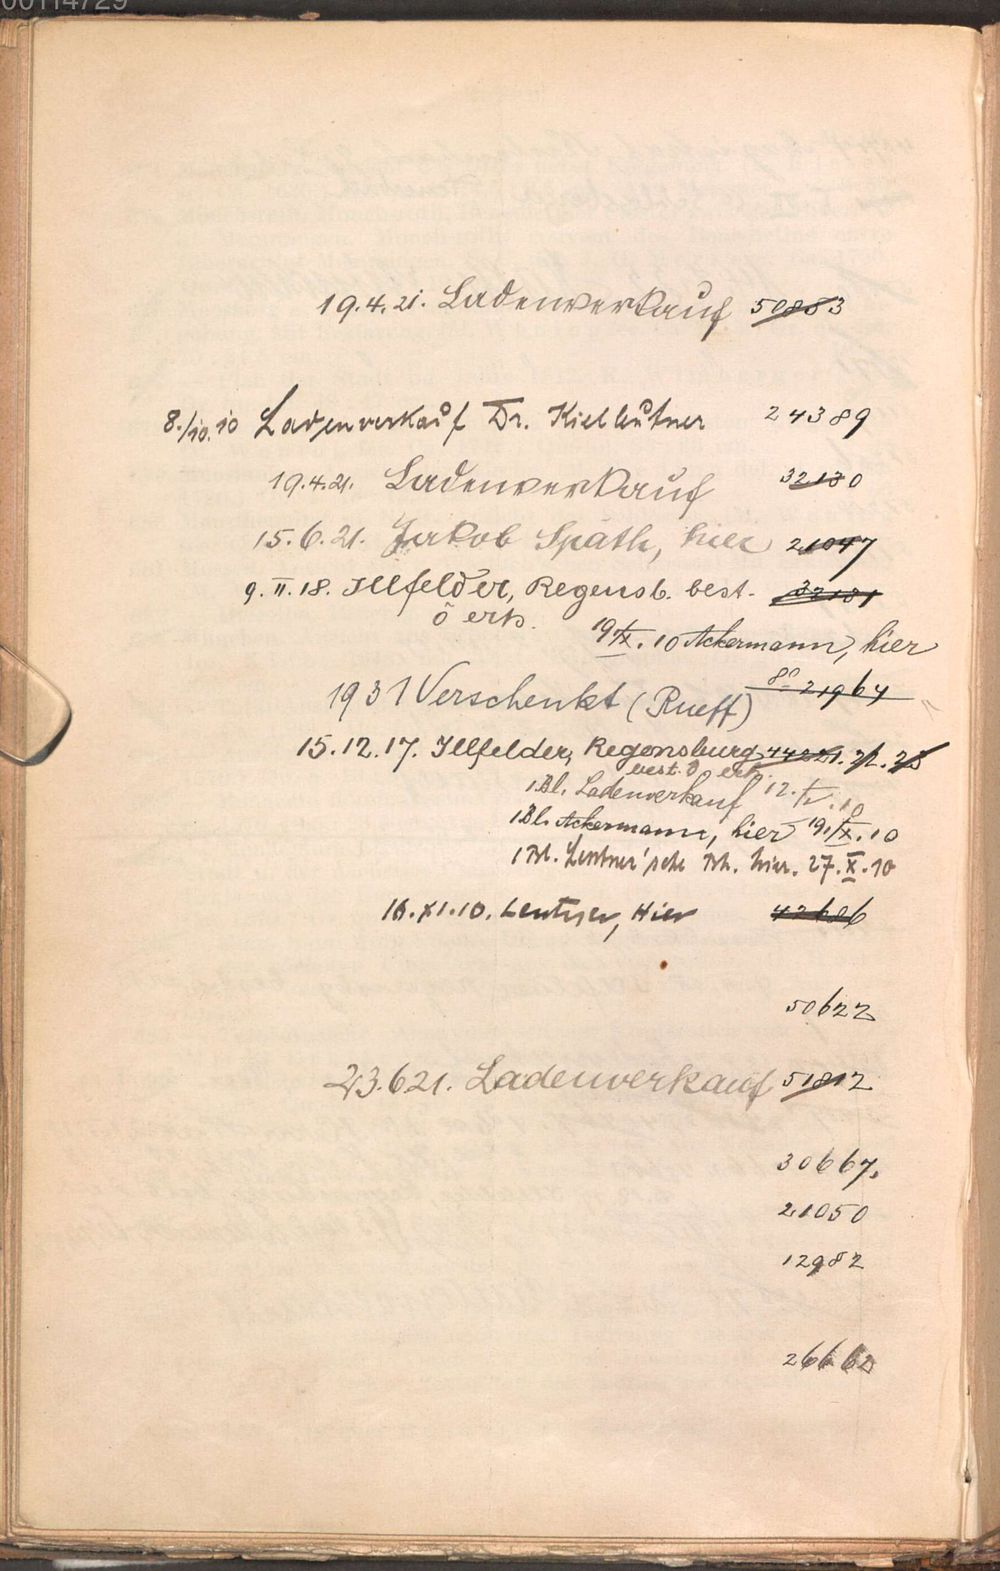 00114729
19.4.21. Ladenverkauf 50883
8./10.10 Ladenverkauf Dr. Kielleutner 24389
19.4.21. Ladenverkauf 32180
15.6.21. Jakob Späth, hier 21047
9.II.18. Illfelder, Regensb. best. 32181
ö erh. 19/IX.10 Ackermann, hier
80 21964
1931 Verschenkt (Rueff)
15.12.17. Illfelder, Regensburg 44221. 22. 23
best. ö erh.
1 Bl. Ladenverkauf 12. 10
1 Bl. Ackermann, hier 19/IX.10
1 Bl. Lentner'sche Bh. hier. 27.X.10
16.XI.10. Lentner, Hier 42686
50622
23.6.21. Ladenverkauf 51812
30667,
21050
12982